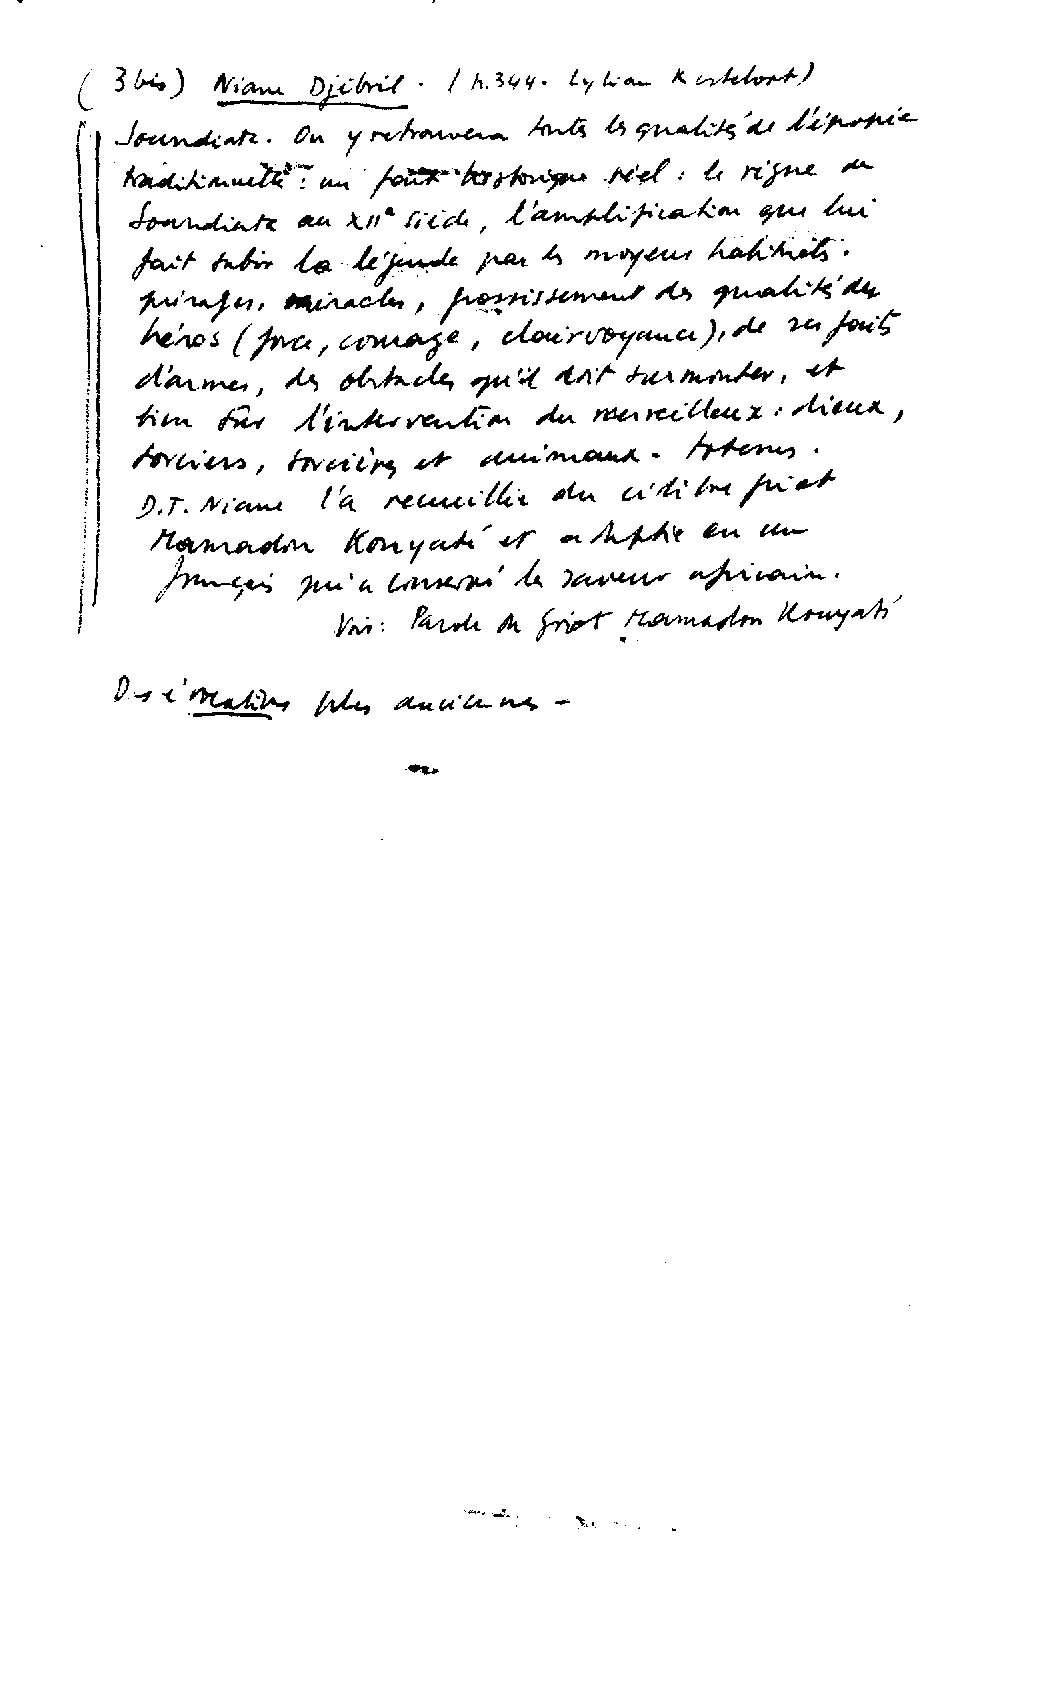 (3 bis) Niane Djibril. (p.344. Lylian Kesteloot)
Soundiata. On y retrouvera toutes les qualités de l'épopée
traditionnelle : un fait historique réel : le règne de
Soundiata au XIIe siècle, l'amplification que lui
fait subir la légende par les moyens habituels.
présages, miracles, grossissement des qualités du
héros (force, courage, clairvoyance), de ses faits
d'armes, des obstacles qu'il doit surmonter, et
bien sûr l'intervention du merveilleux : dieux,
sorciers, sorcières et animaux - totems.
D.T. Niane l'a recueillie du célèbre griot
Mamadou Kouyaté et adaptée en un
français qui a conservé la saveur africaine.
Voir : Parole du Griot Mamadou Kouyaté
plus anciennes -